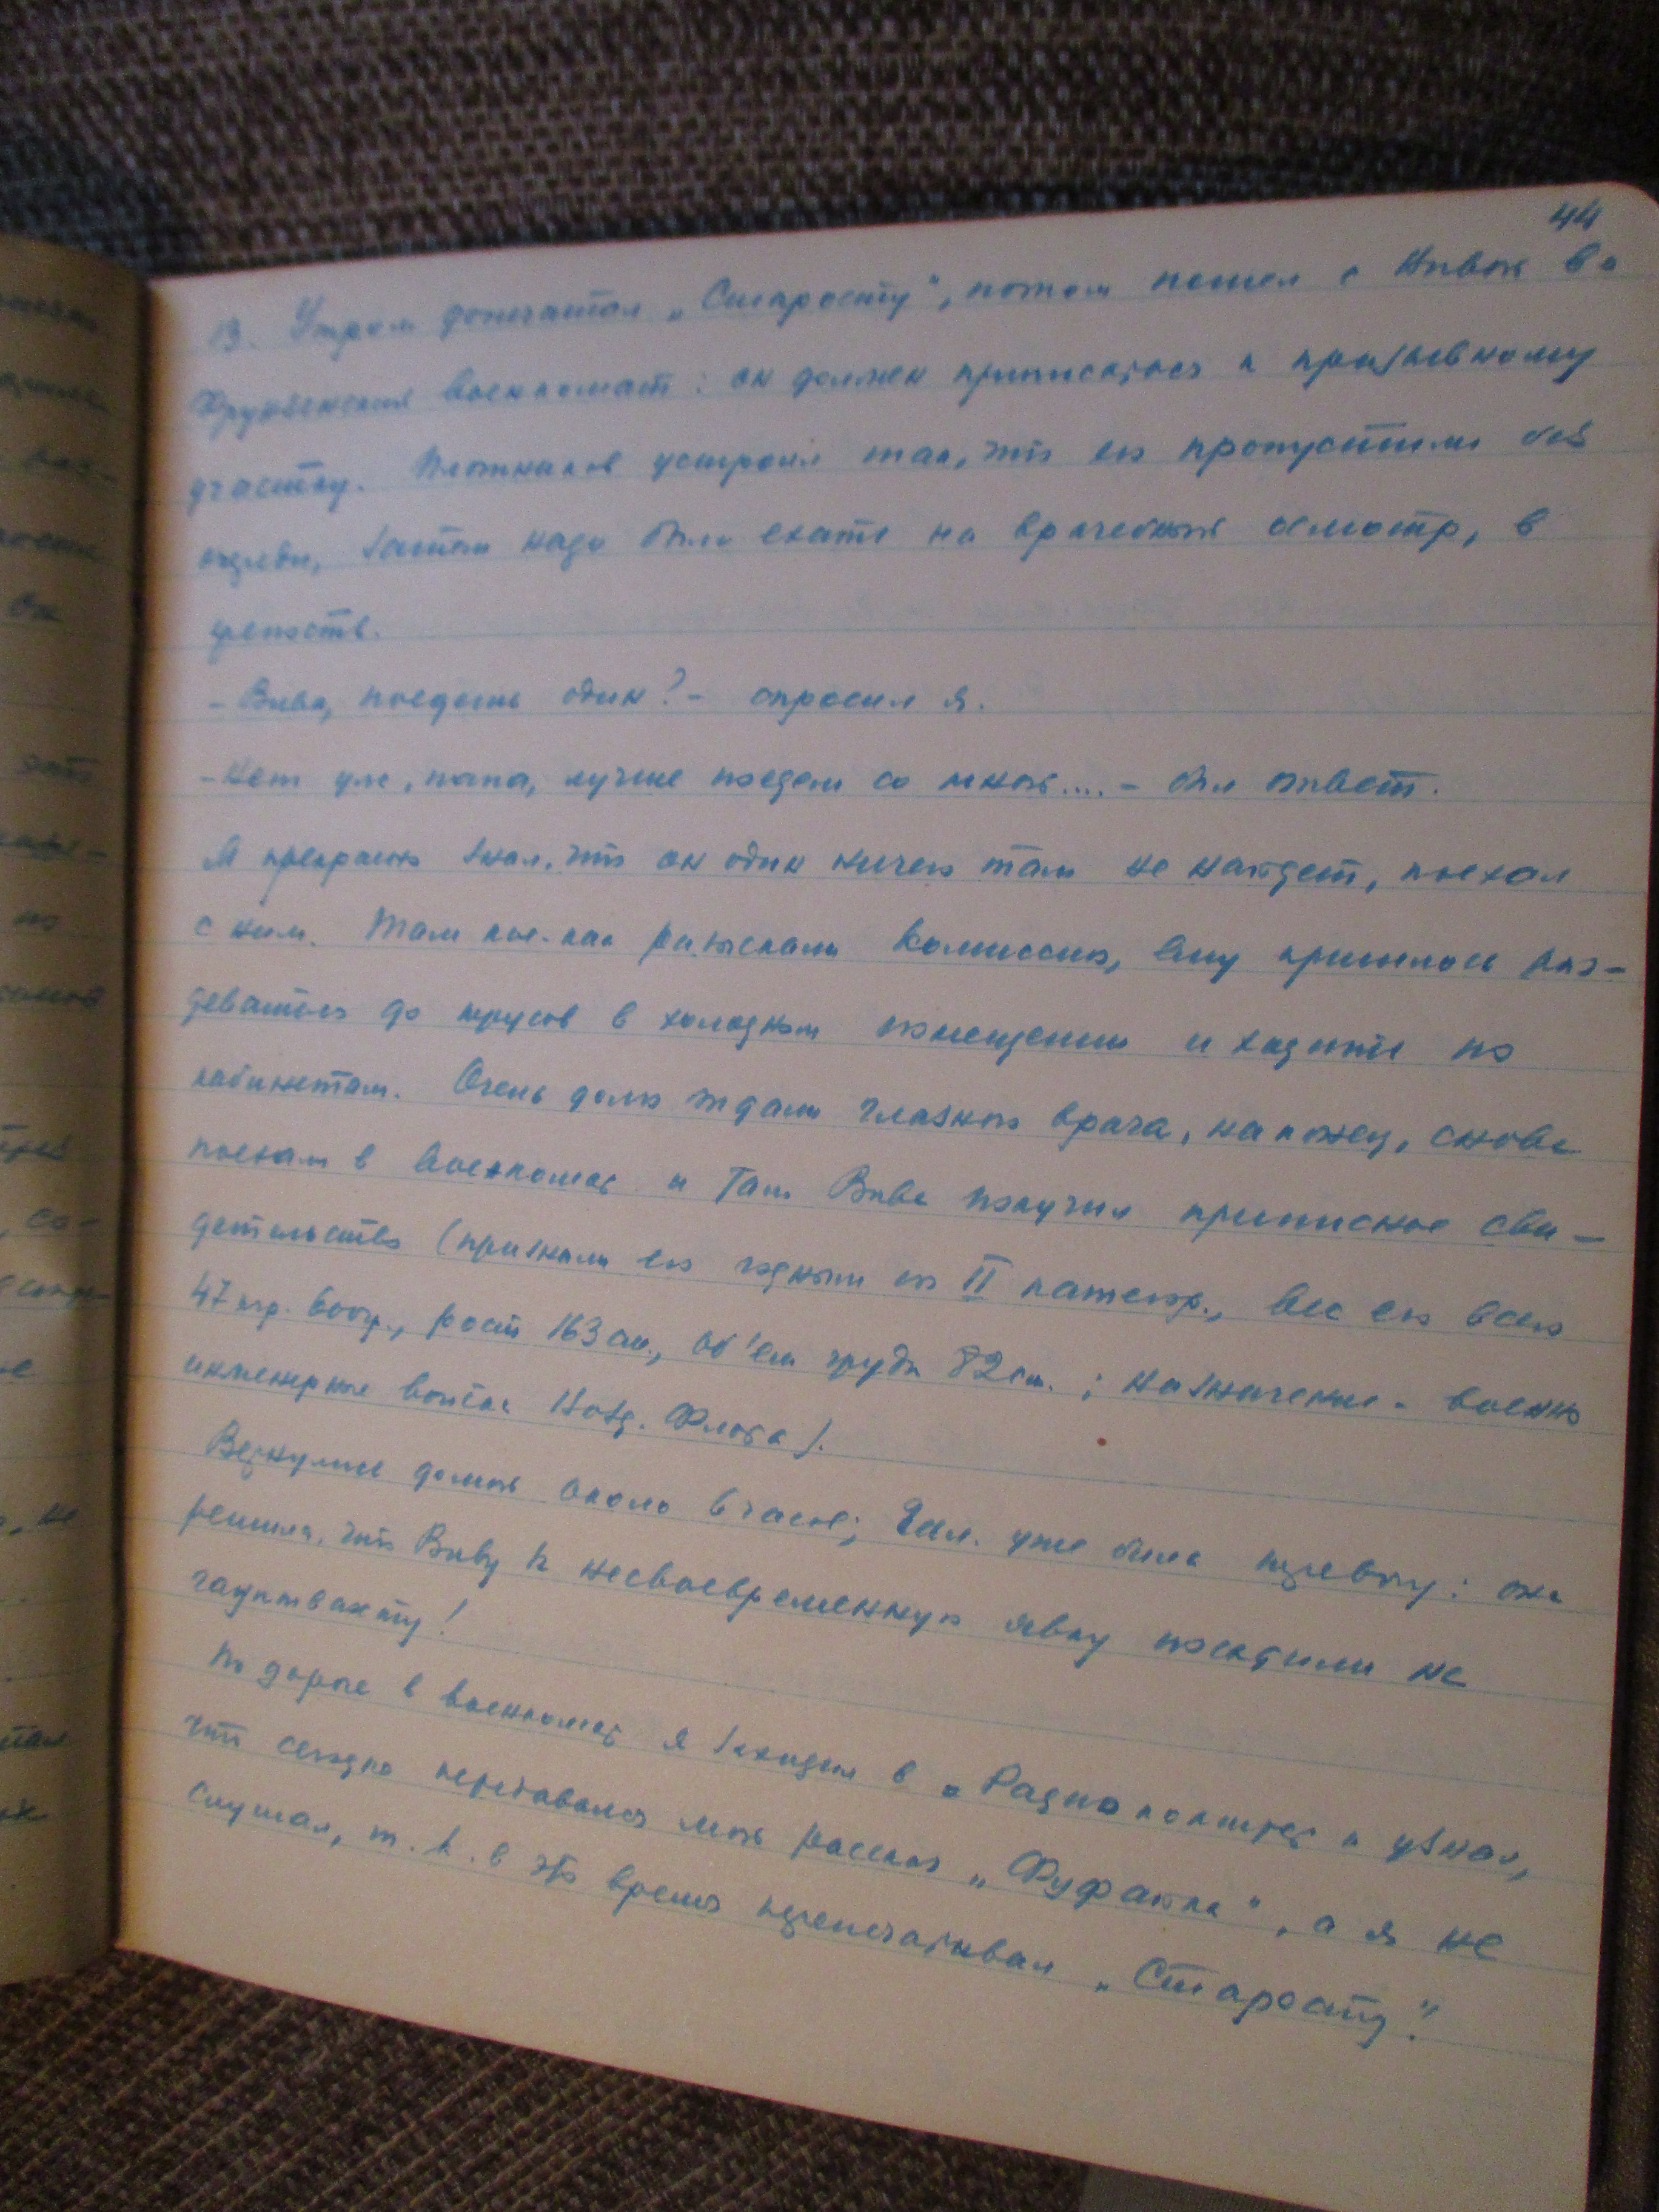 44
13. Утром допечатал „Старосту", потом пошел с Вивой во
Фрунзенский военкомат: он должен приписаться к призывному
участку. Плотников устроил так, что его пропустили без
очереди, затем надо было ехать на врачебный осмотр, в
крепость.
- Вива, поедешь один? - спросил я.
- Нет уж, папа, лучше поедем со мной.... - был ответ.
Я прекрасно знал, что он один ничего там не найдет, поехал
с ним. Там кое-как разыскали комиссию, ему пришлось раз-
деваться до трусов в холодном помещении и ходить по
кабинетам. Очень долго ждали глазного врача, наконец, снова
поехали в военкомат и там Вива получил приписное сви-
детельство (признали его годным по II категор., вес его всего
47 кгр. 600 гр., рост 163 см., об'ем груди 82 см.; назначение - военно
инженерные войска Возд. Флота).
Вернулись домой около 6 часов; Гал. уже била тревогу: она
решила, что Виву за несвоевременную явку посадили на
гауптвахту!
По дороге в военкомат я заходил в „Радиокомитет и узнал,
что сегодня передавался мой рассказ „Фуфайка", а я не
слушал, т.к. в это время перепечатывал „Старосту".